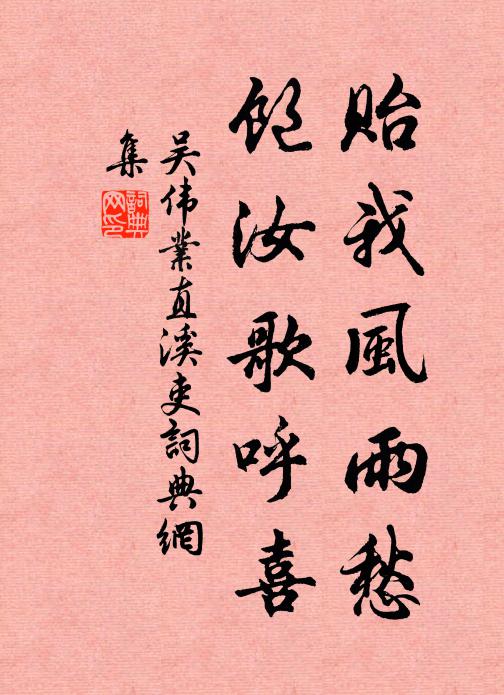 貽我風雨愁
飽汝歌呼喜
吴伟業直溪吏詞典網
集
詞典
网印